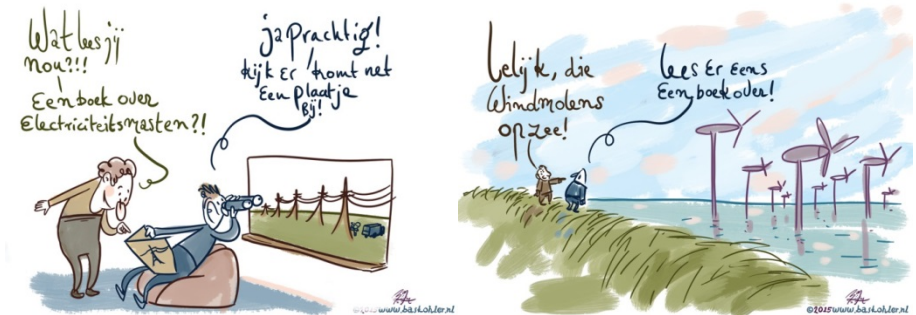 Wat lees jij
nou?!!!
Een boek over
Electriciteitsmasten?!
ja prachtig!
kijk Er komt net
Een plaatje
Bij!
www.baskohler.nl
Lelijk, die
Windmolens
op zee!
Lees Er eens
Een boek over!
©2025www.baskohler.nl